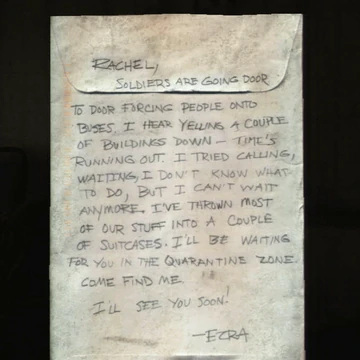 RACHEL,
SOLDIERS ARE GOING DOOR
TO DOOR FORCING PEOPLE ONTO
BUSES. I HEAR YELLING A COUPLE
OF BUILDINGS DOWN – TIME'S
RUNNING OUT. I TRIED CALLING,
WAITING, I DON'T KNOW WHAT
TO DO, BUT I CAN'T WAIT
ANYMORE. I'VE THROWN MOST
OF OUR STUFF INTO A COUPLE
OF SUITCASES. I'LL BE WAITING
FOR YOU IN THE QUARANTINE ZONE.
COME FIND ME.
I'LL SEE YOU SOON!
–EZRA